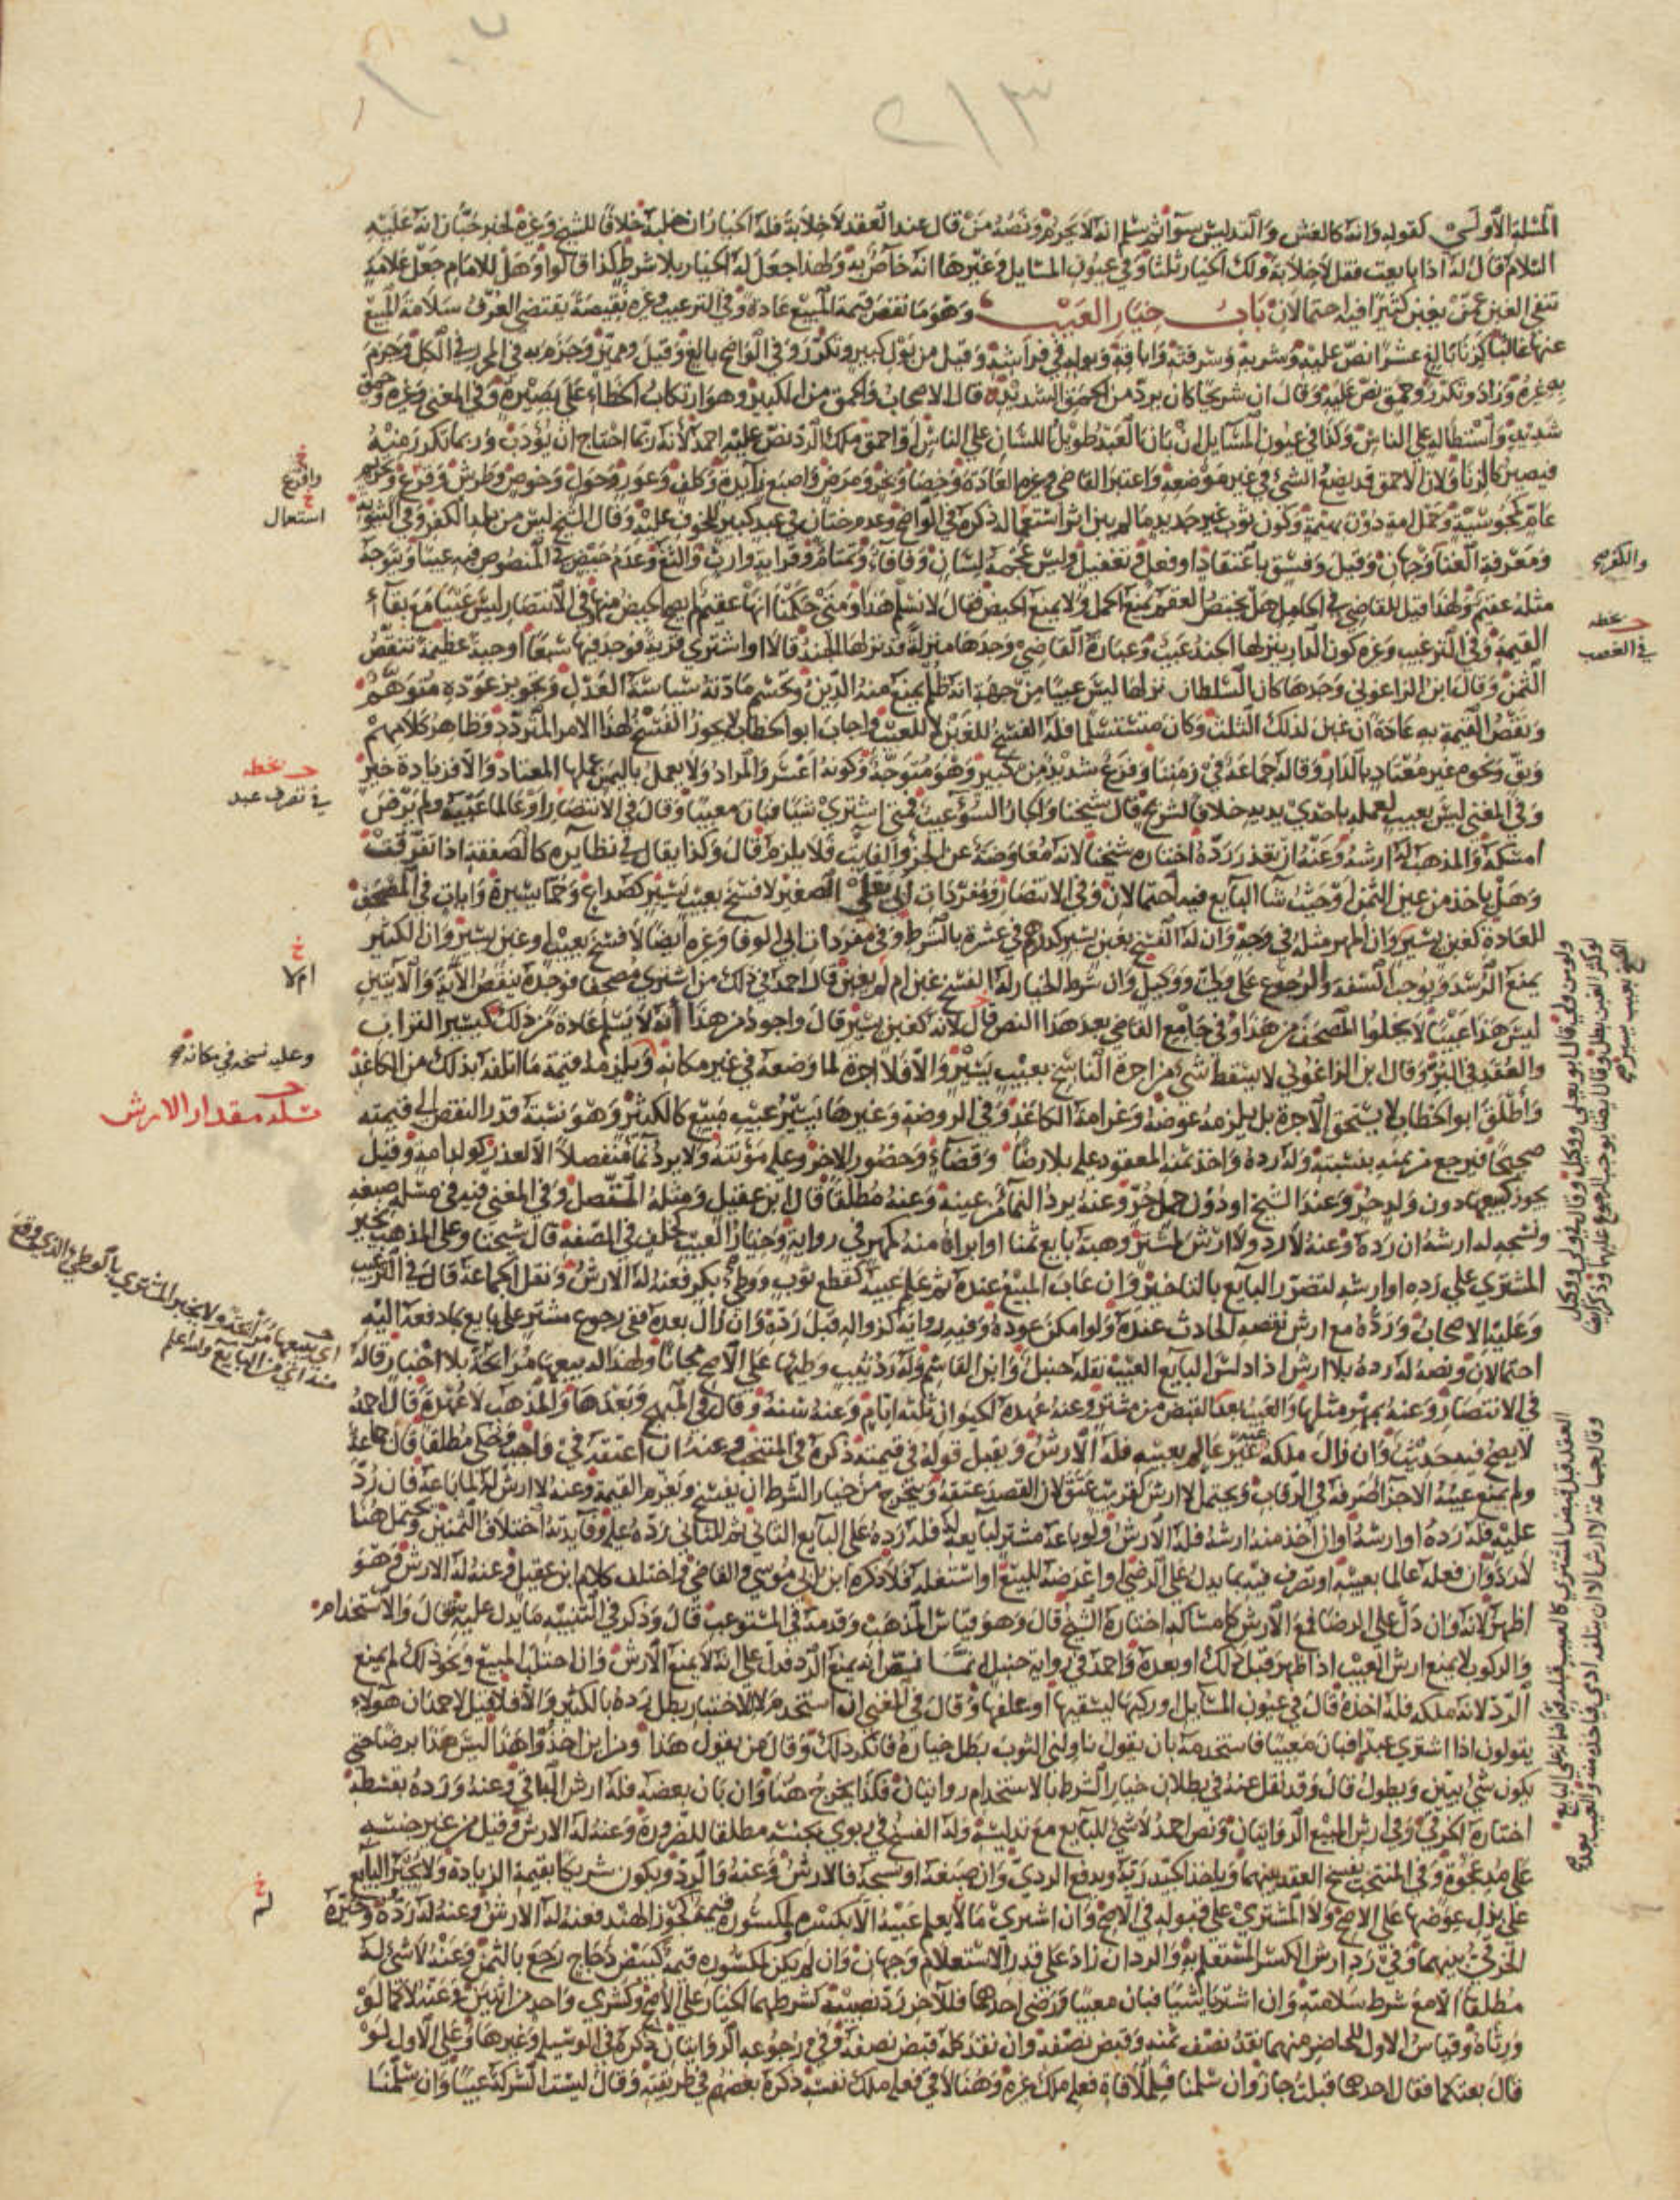 ٢١٣
المسئلة الاولى كقوله وانه كالغش والتدليس سوآ ثم سلم انه لا يحرم ونصه من قال عند العقد لا خلابة فله الخيار ان خلبه خلافا للشيخ وغيره لخبر حبان انه عليه
السلام قال له اذا بايعت فقل لا خلابة ولك الخيار ثلثا وفي عيون المسايل وغيرها انه خاص به ولهذا جعل له الخيار بلا شرط كذا قالوا وهل للامام جعل علامة
تنفي الغبن عمن يغبن كثيرا فيه احتمالان باب خيار العيب وهو ما نقص قيمة المبيع عادة وفي الترغيب وغيره نقيصة يقتضي العرف سلامة المبيع
عنها غالبا كزنا بالغ عشرا نص عليه وشربه وسرقته واباقه وبوله في فراشه وقيل من بول كبير وتكرر وفي الواضح بالغ وقيل ومميز وجزم به في المحرر في الكل وجزم
به غيره وزاد وتكرر وحمق نص عليه وقال ان شريحا كان يرد من الحمق الشديد قال الاصحاب والحمق من الكبير وهو ارتكاب الخطاء على بصيرة وفي المغني وغيره وحمق
شديد واستطاله على الناس وكذا في عيون المسايل ان بان العبد طويل اللسان على الناس او احمق ملك الرد نص عليه احمد لانه ربما احتاج ان يؤدب وربما تكرر منه
فيصير كالزنا ولان الاحمق قد يضع الشئ في غير موضعه واعتبر القاضي وغيره العادة وخصا وبخر ومرض واصبع زآيدة وكلف وعور وحول وخوص وطرش وقرع وتحريم
عام كمجوسية وحمل امة دون بهيمة وكون ثوب غير جديد ما لم يبن اثر استعماله ذكره في الواضح وعدم ختان في عبد كبير للخوف عليه وقال الشيخ ليس من بلد الكفر وفي الثيوبة
ومعرفة الغنا وجهان وقيل وفسق باعتقاد او فعل وتغفيل وليس عجمة لسان وفافاء وتمتام وقرابة وارث والثغ وعدم حيض في المنصوص فيه عيبا ويتوجه
مثله عقيم ولهذا قيل للقاضي في الحامل حمل يختص العقم يمنع الحمل ولا يمنع الحيض فقال لا نسلم هذا ومتى حكمنا انها عقيم لم يصح الحيض منها في الانتصار ليس عيبا مع بقآء
القيمة وفي الترغيب وغيره كون الدار ينزلها الجند عيب وعبارة القاضي وجدها منزلة قد نزلها الجند قالا او اشترى قرية فوجد فيها سبعا او حية عظيمة تنقص
الثمن وقال ابن الزاغوني وجدها كان السلطان نزلها ليس عيبا من جهة انه ظلم يمنع منه الدين وتحسم مادته سياسة العدل وتجويز عوده متوهم
ونقص القيمة به عادة ان غبن لذلك الثلث وكان مستسلما فله الفسخ للغبن لا للعيب واجاب ابو الخطاب لا يجوز الفسخ لهذا الامر المتردد وظاهر كلامهم
وبق ونحوه غير معتاد بالدار وقاله جماعة في زمننا وفزع شديد من كبير وهو متوجه وكونه اعسر والمراد ولا يعمل باليمين عملها المعتاد والا فزيادة خير
وفي المغني ليس بعيب لعمله باحدى يديه خلافا لشريح قال شيخنا والجار السؤ عيب فمتى اشترى شيئا فبان معيبا وقال في الانتصار او عالما عيبه ولم يرض
امسكه والمذهب له ارشه وعنه ان تعذر رده اختاره شيخنا لانه معاوضة عن الجزء الفايت فلا يلزم قال وكذا يقال في نظآيره كالصفقة اذا تفرقت
وهل ياخذ من عين الثمن او حيث شآ البآيع فيه احتمالان وفي الانتصار ومفردات ابي يعلى الصغير لا فسخ بعيب يسير كصداع وحما يسيرة وايات في المصحف
للعادة كغبن يسير وان المهر مثله في وجه وان له الفسخ بغبن يسير كدرهم في عشرة بالشرط وفي مفردات ابي الوفا وغيره ايضا لا فسخ بعيب او غبن يسير وان الكثير
يمنع الرشد ويوجب السفه والرجوع على ولي ووكيل وان شرط الخيار له الفسخ غبن ام لم يغبن قال احمد في ذلك من اشترى مصحفا فوجده ينقص الآية والآيتين
ليس هذا عيبا لا يخلوا المصحف من هذا وفي جامع القاضي بعد هذا النص قال لانه كغبن يسير قال واجود من هذا انه لا يسلم عادة من ذلك كيسير التراب
والعقد في البر وقال ابن الزاغوني لا يسقط شئ من اجرة الناسخ بعيب يسير والا فلا اجرة لما وضعه في غير مكانه ويلزمه قيمة ما اتلفه بذلك من الكاغذ
واطلق ابو الخطاب لا يستحق الاجرة بل يلزمه عوضه وغرامة الكاغذ وفي الروضة وغيرها يسير عيب مبيع كالكثير وهو نسبة قدر النقص الى قيمته
صحيحا فيرجع من ثمنه بنسبته وله رده واخذ ثمنه المعقود عليه بلا رضا وقضاء وحضور الاخر وعليه مؤنته ولا يرد نمآ منفصلا الا لعذر كولد امة وقيل
يجوز كبيعها دون ولد حر وعند الشيخ او دون حمل حر وعنه يرد النمآ من عينه وعنه مطلقا قال ابن عقيل ومثله المتصل وفي المغني فيه في مسئلة صبغه
ونسجه له ارشه ان رده وعنه لا رد ولا ارش لمشتر وهبه بآيع ثمنا او ابراه منه كمهر في رواية وخيار العيب لخلف في الصفة قال شيخنا وعلى المذهب يخير
المشتري على رده او ارشه لتضرر البآيع بالتاخير وان عاب المبيع عنده ثم علم عيبه كقطع ثوب ووطئ بكر فعنه له الارش ونقل الجماعة قال في الترغيب
وعليه الاصحاب ورده مع ارش نقصه الحادث عنده ولو امكن عوده وفيه رواية كزواله قبل رده وان زال بعده ففي رجوع مشتر على بايع بما دفعه اليه
احتمالان ونصه له رده بلا ارش اذا دلس البايع العيب نقله حنبل وابن القاسم وله رد ثيب وطئها على الاصح مجانا ولهذا له بيعها مرابحة بلا اخبار قاله
في الانتصار وعنه بمهر مثلها والعيب بعد القبض من مشتر وعنه عهدة الحيوان ثلثة ايام وعنه سنة وقال في المبهج وبعدها والمذهب لا عهدة قال احمد
لا يصح فيه حديث وان زال ملكه غير عالم بعيبه فله الارش ويقبل قوله في قيمته ذكره في المنتخب وعنه ان اعتقه في واجب وحكي مطلقا قال جماعة
ولم يمنع عيبه الاجزا صرفه في الرقاب ويحتمل لا ارش كقريب عتق لان القصد عتقه ويتخرج من خيار الشرط ان يفسخ ويغرم القيمة وعنه لا ارش له لما باعه فان رد
عليه فله رده او ارشه وان اخذ منه ارشه فله الارش ولو باعه مشتر لبايعه فله رده على البآيع الثاني ثم للثاني رده عليه وفآيدته اختلاف الثمنين ويحتمل هنا
لا رد وان فعله عالما بعيبه او تصرف فيه بما يدل على الرضى او عرضه للبيع او استغله فلا ذكره ابن ابي موسى والقاضي واختلف كلام ابن عقيل وعنه له الارش وهو
اظهر لانه وان دل على الرضا فمع الارش كامساكه اختاره الشيخ قال وهو قياس المذهب وقدمه في المستوعب قال وذكر في التنبيه ما يدل عليه وقال والاستخدام
والركوب لا يمنع ارش العيب اذا ظهر قبل ذلك او بعده واحمد في رواية حنبل انما نص انه يمنع الرد فدل على انه لا يمنع الارش وان احتلب المبيع ونحو ذلك لم يمنع
الرد لانه ملكه فله اخذه قال في عيون المسآيل او ركبها ليسقيها او علفها وقال في المغني ان استخدم لا للاختبار بطل رده بالكثير والا فلا قيل لاحمد ان هولاء
يقولون اذا اشترى عبدا فبان معيبا فاستخدمه بان يقول ناولني الثوب بطل خياره فانكر ذلك وقال من يقول هذا ومن اين اخذوا هذا ليس هذا برضا حتى
يكون شئ يبين ويطول قال وقد نقل عنه في بطلان خيار الشرط بالاستخدام روايتان فكذا يخرج هنا وان بان بعضه فله ارش الباقي وعنه ورده بقسطه
اختاره الخرقي وفي ارش المبيع الروايتان ونص احمد لا شئ للبآيع مع تدليسه وله الفسخ في ربوي بجنسه مطلقا للضرورة وعنه له الارش وقيل من غير جنسه
على مد عجوة وفي المنتخب يفسخ العقد بينهما وياخذ الجيد ربه ويدفع الردي وان صبغه او نسجه فالارش وعنه والرد ويكون شريكا بقيمة الزيادة ولا يجبر البآيع
على بذل عوضها على الاصح ولا المشتري على قبوله في الاصح وان اشترى ما لا يعلم عيبه الا بكسره ولمكسوره قيمة كجوز الهند فعنه له الارش وعنه له رده وخيره
الخرقي بينهما وفي رد ارش الكسر المستعلم به والرد ان زاد على قدر الاستعلام وجهان وان لم يكن لمكسوره قيمة كبيض دجاج رجع بالثمن وعنه لا شئ له
مطلقا الا مع شرط سلامته وان اشتريا شيئا فبان معيبا ورضى احدهما فللآخر رد نصيبه كشرطهما الخيار على الاصح وكشري واحد من اثنين وعنه لا كما لو
ورثاه وقياس الاول للحاضر منهما نقد نصف ثمنه وقبض نصفه وان نقد كله قبض نصفه وفي رجوعه الروايتان ذكره في الوسيلة وغيرها وعلى الاول لو
قال بعتكما فقال احدهما قبلت جاز وان سلمنا فلملاقاة فعله ملك غيره وهنا لاقى فعله ملك نفسه ذكره بعضهم في طريقته وقال ليست الشركة عيبا وان سلمنا
خ
واقرع
خ
استعال
والكفر
حـ بخطه
في الغصب
حـ بخطه
في تصرف عبد
خ
ام لا
وعليه نسخه في مكانه
حـ
مسئلة مقدار الارش
اي يبيعها مرابحة ولا يخبر المشتري بالوطئ الذي وقع
منه اي من البايع والله اعلم
خ
لم